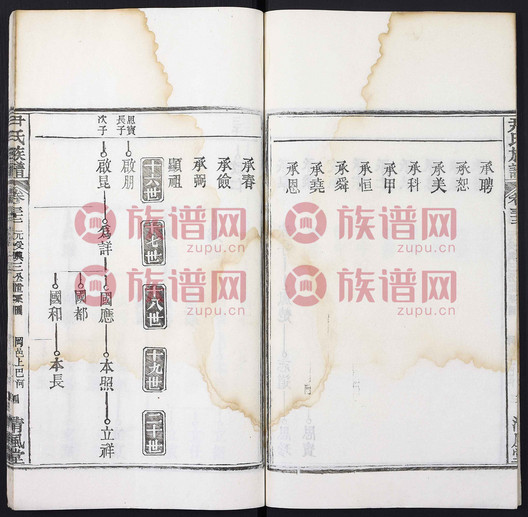 承聘
承恕
承美
承科
承甲
承恒
承舜
承堯
承恩
承春
承儉
承弼
顯祖
十六世
十七世
十八世
十九世
二十世
恩寶
長子
啟朋
次子
啟昆
為詳
國應
本照
立祥
國都
國和
本長
尹氏族譜
清風堂
族谱网
zupu.cn
族谱网
zupu.cn
族谱网
zupu.cn
族谱网
zupu.cn